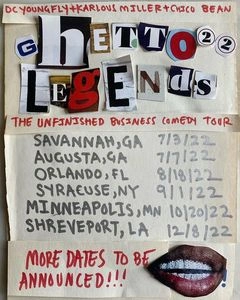 DC YOUNGFLY+KARLOUS MILLER+CHICO BEAN
gHETTO22
LEgENDS
THE UNFINISHED BUSINESS COMEDY TOUR
SAVANNAH,GA 7/3/22
AUGUSTA,GA 7/7/22
ORLANDO,FL 8/18/22
SYRACUSE,NY 9/11/22
MINNEAPOLIS,MN 10/20/22
SHREVEPORT,LA 12/8/22
MORE DATES TO BE
ANNOUNCED!!!